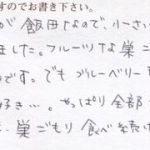 すのでお書き下さい。
が 飯田なので、小さい
ました。フルーツな巣ご
です。でも ブルーベリー
好き…。やっぱり全部
、巣ごもり 食べ続け